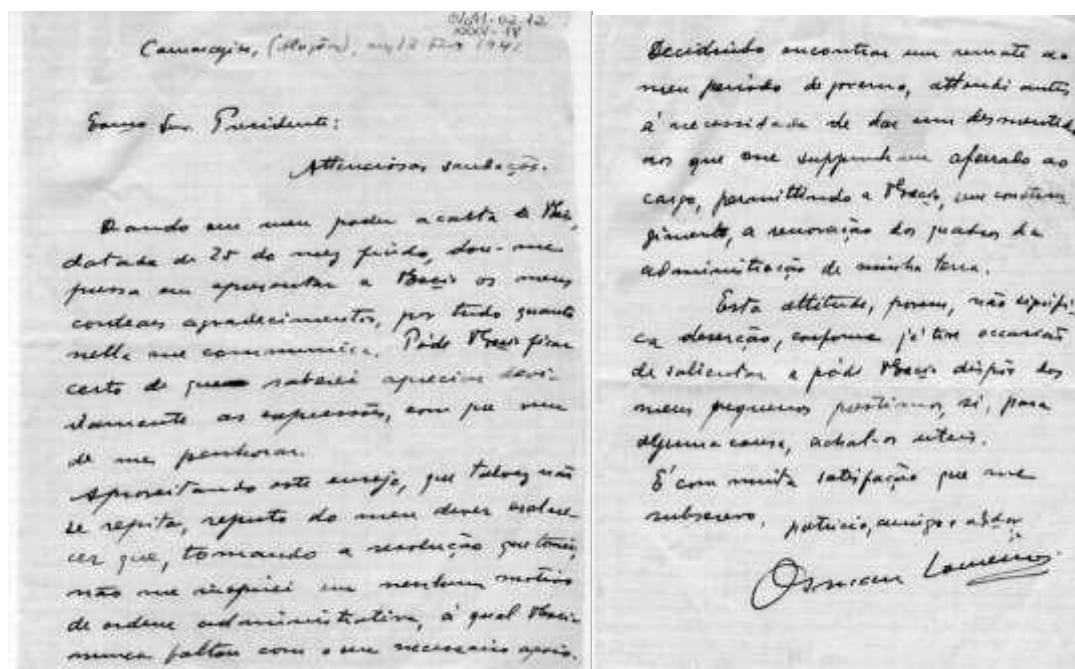 XXXV-18
Camaragibe, (Alagôas), em 12 Fev 1941
Exmo Snr. Presidente:
Attenciosas saudações.
Quando em meu poder a carta de
datada de 25 do mez findo, dou-me
pressa em apresentar a Vocia os meus
cordeaes agradecimentos, por tudo quanto
nella me communica. Póde Vocia ficar
certo de que saberei apreciar devi-
damente as expressões, com que vem
de me penhorar.
Aproveitando este ensejo, que talvez não
se repita, reputo do meu dever esclare-
cer que, tomando a resolução que tomei,
não me inspirei em nenhum motivo
de ordem administrativa, á qual
nunca faltou com o seu necessario apoio.
Decidindo encontrar um remate ao
meu periodo de governo, attendi antes
á necessidade de dar um desmentido
aos que me suppunham aferrado ao
cargo, permittindo a sem constran
gimento, a renovação dos quadros da
administração de minha terra.
Esta attitude, porem, não signifi-
ca deserção, conforme já tive occasião
de salientar e póde dispôr dos
meus pequenos prestimos, si, para
alguma cousa, achal-os uteis.
É com muita satisfação que me
subscrevo, patricio, amigo e
Osman Loureiro